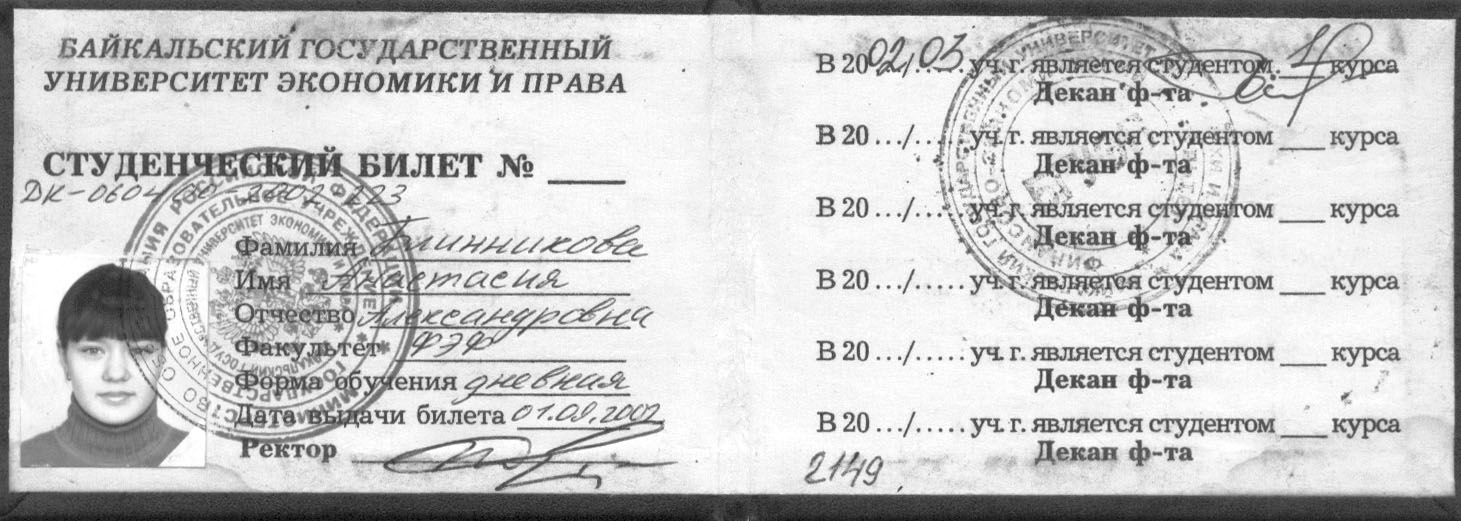 БАЙКАЛЬСКИЙ ГОСУДАРСТВЕННЫЙ
УНИВЕРСИТЕТ ЭКОНОМИКИ И ПРАВА
СТУДЕНЧЕСКИЙ БИЛЕТ № ____
Фамилия Блинникова
Имя Анастасия
Отчество Александровна
Факультет ФЭФ
Форма обучения дневная
Дата выдачи билета 01.09.2002
Ректор
В 2002/03 уч. г. является студентом 1 курса
Декан ф-та
В 20.../..... уч. г. является студентом ___ курса
Декан ф-та
В 20.../..... уч. г. является студентом ___ курса
Декан ф-та
В 20.../..... уч. г. является студентом ___ курса
Декан ф-та
В 20.../..... уч. г. является студентом ___ курса
Декан ф-та
В 20.../..... уч. г. является студентом ___ курса
Декан ф-та
2149